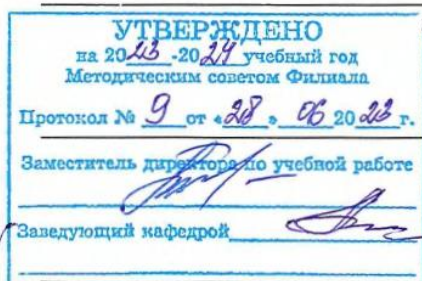 УТВЕРЖДЕНО
на 2023-2024 учебный год
Методическим советом Филиала
Протокол № 9 от «28» 06 2023 г.
Заместитель директора по учебной работе
Заведующий кафедрой